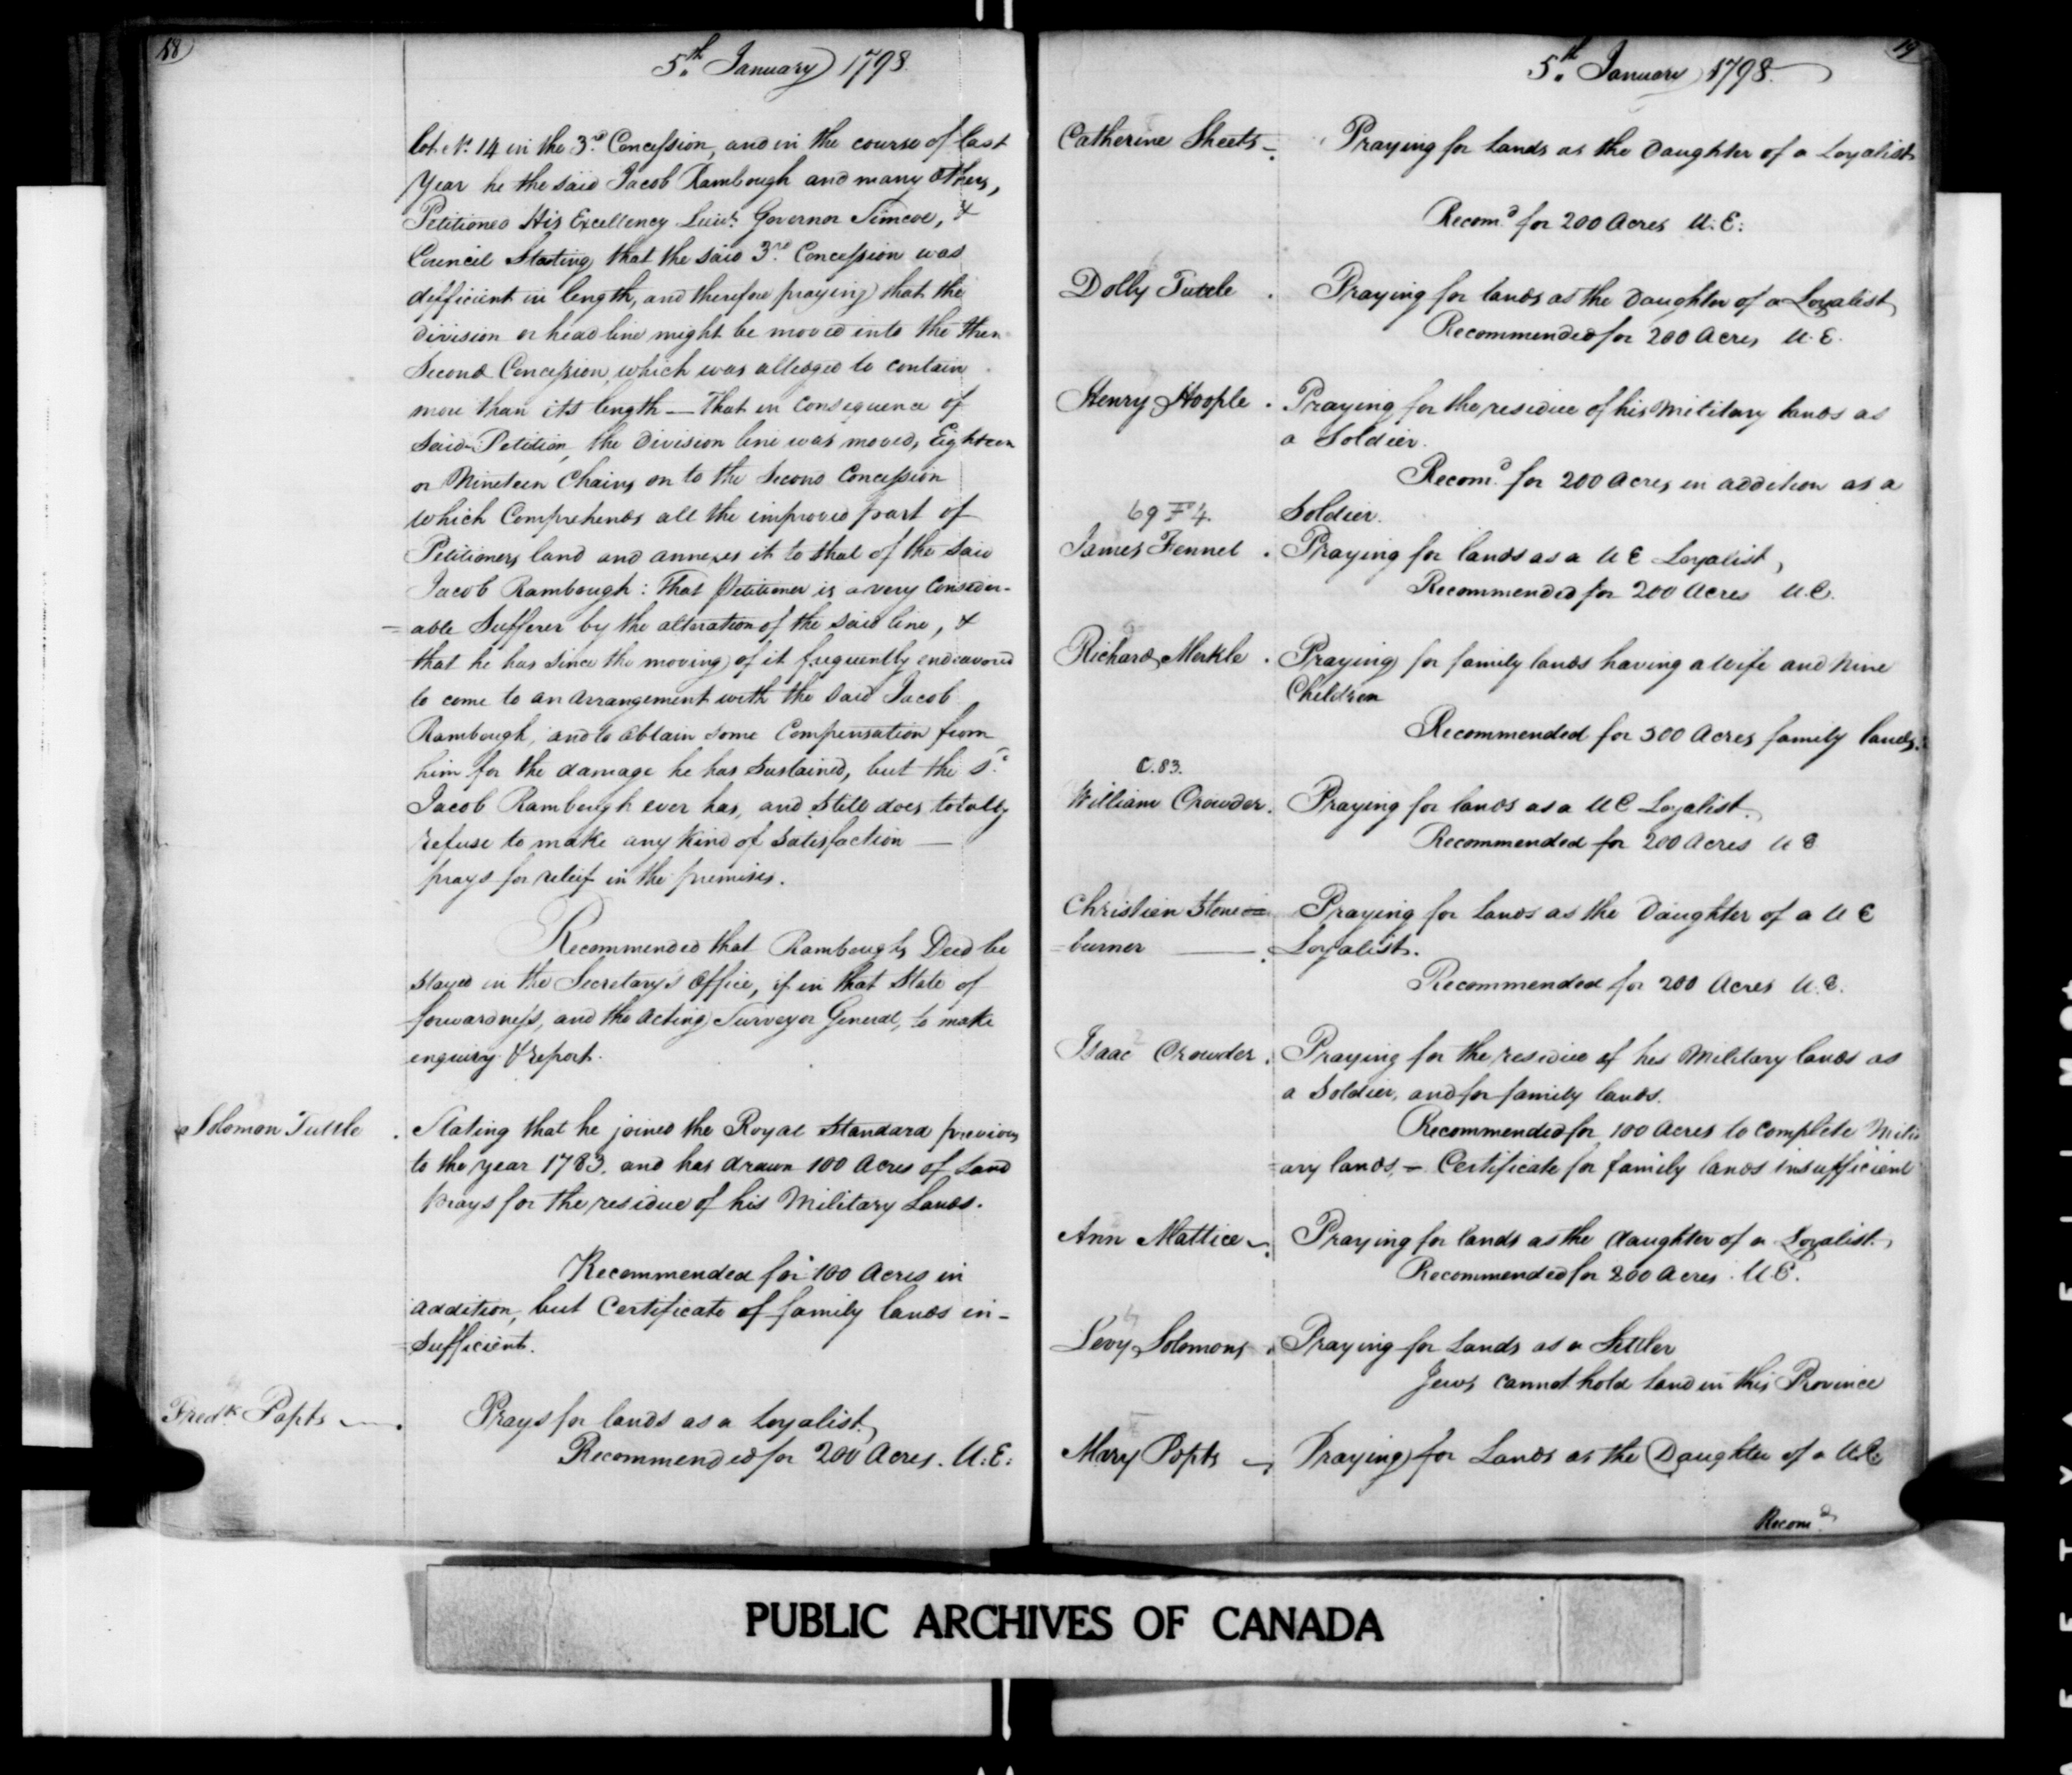 18
5.th January 1798.
lot No. 14 in the 3.rd Concession, and in the course of last
Year he the said Jacob Rambough and many others,
Petitioned His Excellency Lieut. Governor Simcoe, &
Council Stating that the said 3.rd Concession was
defficient in length, and therefore praying that the
division or head line might be moved into the then
Second Concession, which was alledged to contain
more than its length — That in consequence of
said Petition, the division line was moved, Eighteen
or Nineteen Chains on to the Second Concession
which Comprehends all the improved part of
Petitioners land and annexes it to that of the said
Jacob Rambough: That Petitioner is a very Consider-
=able Sufferer by the alteration of the said line, &
that he has since the moving of it frequently endeavored
to come to an arrangement with the said Jacob
Rambough, and to obtain some Compensation from
him for the damage he has sustained, but the sd.
Jacob Rambough ever has, and still does totally
refuse to make any kind of satisfaction —
prays for releif in the premises.
Recommended that Rambough's Deed be
stayed in the Secretary's Office, if in that State of
forwardness, and the Acting Surveyor General, to make
enquiry & report.
Solomon Tuttle . Stating that he joined the Royal Standard previous
to the year 1783. and has drawn 100 Acres of Land
prays for the residue of his Military Lands.
Recommended for 100 Acres in
addition, but Certificate of family lands in-
=sufficient.
Fredk. Papts — . Prays for lands as a Loyalist.
Recommended for 200 Acres. U:E:
19
5.th January 1798.
Catherine Sheets — . Praying for Lands as the Daughter of a Loyalist
Recomd. for 200 Acres U:E:
Dolly Tuttle . Praying for lands as the Daughter of a Loyalist
Recommended for 200 Acres U.E.
Henry Hoople . Praying for the residue of his Military lands as
a Soldier.
Recomd. for 200 Acres in addition as a
69 F 4. Soldier.
James Fennel . Praying for lands as a UE Loyalist,
Recommended for 200 Acres U.E.
Richard Merkle . Praying for family lands having a Wife and Nine
Children
Recommended for 500 Acres family lands.
C. 83.
William Crowder . Praying for lands as a UE Loyalist.
Recommended for 200 Acres UE
Christien Stone= Praying for Lands as the Daughter of a UE
=burner — . Loyalist.
Recommended for 200 Acres U.E.
Isaac Crowder . Praying for the residue of his Military lands as
a Soldier, and for family lands.
Recommended for 100 Acres to complete Milit
=ary lands. — Certificate for family lands insufficient
Ann Mattice — . Praying for lands as the daughter of a Loyalist.
Recommended for 200 Acres. U.E.
Levy Solomons . Praying for Lands as a Settler
Jews cannot hold Land in this Province
Mary Papts — , Praying for Lands as the Daughter of a UE
Recomd.
PUBLIC ARCHIVES OF CANADA